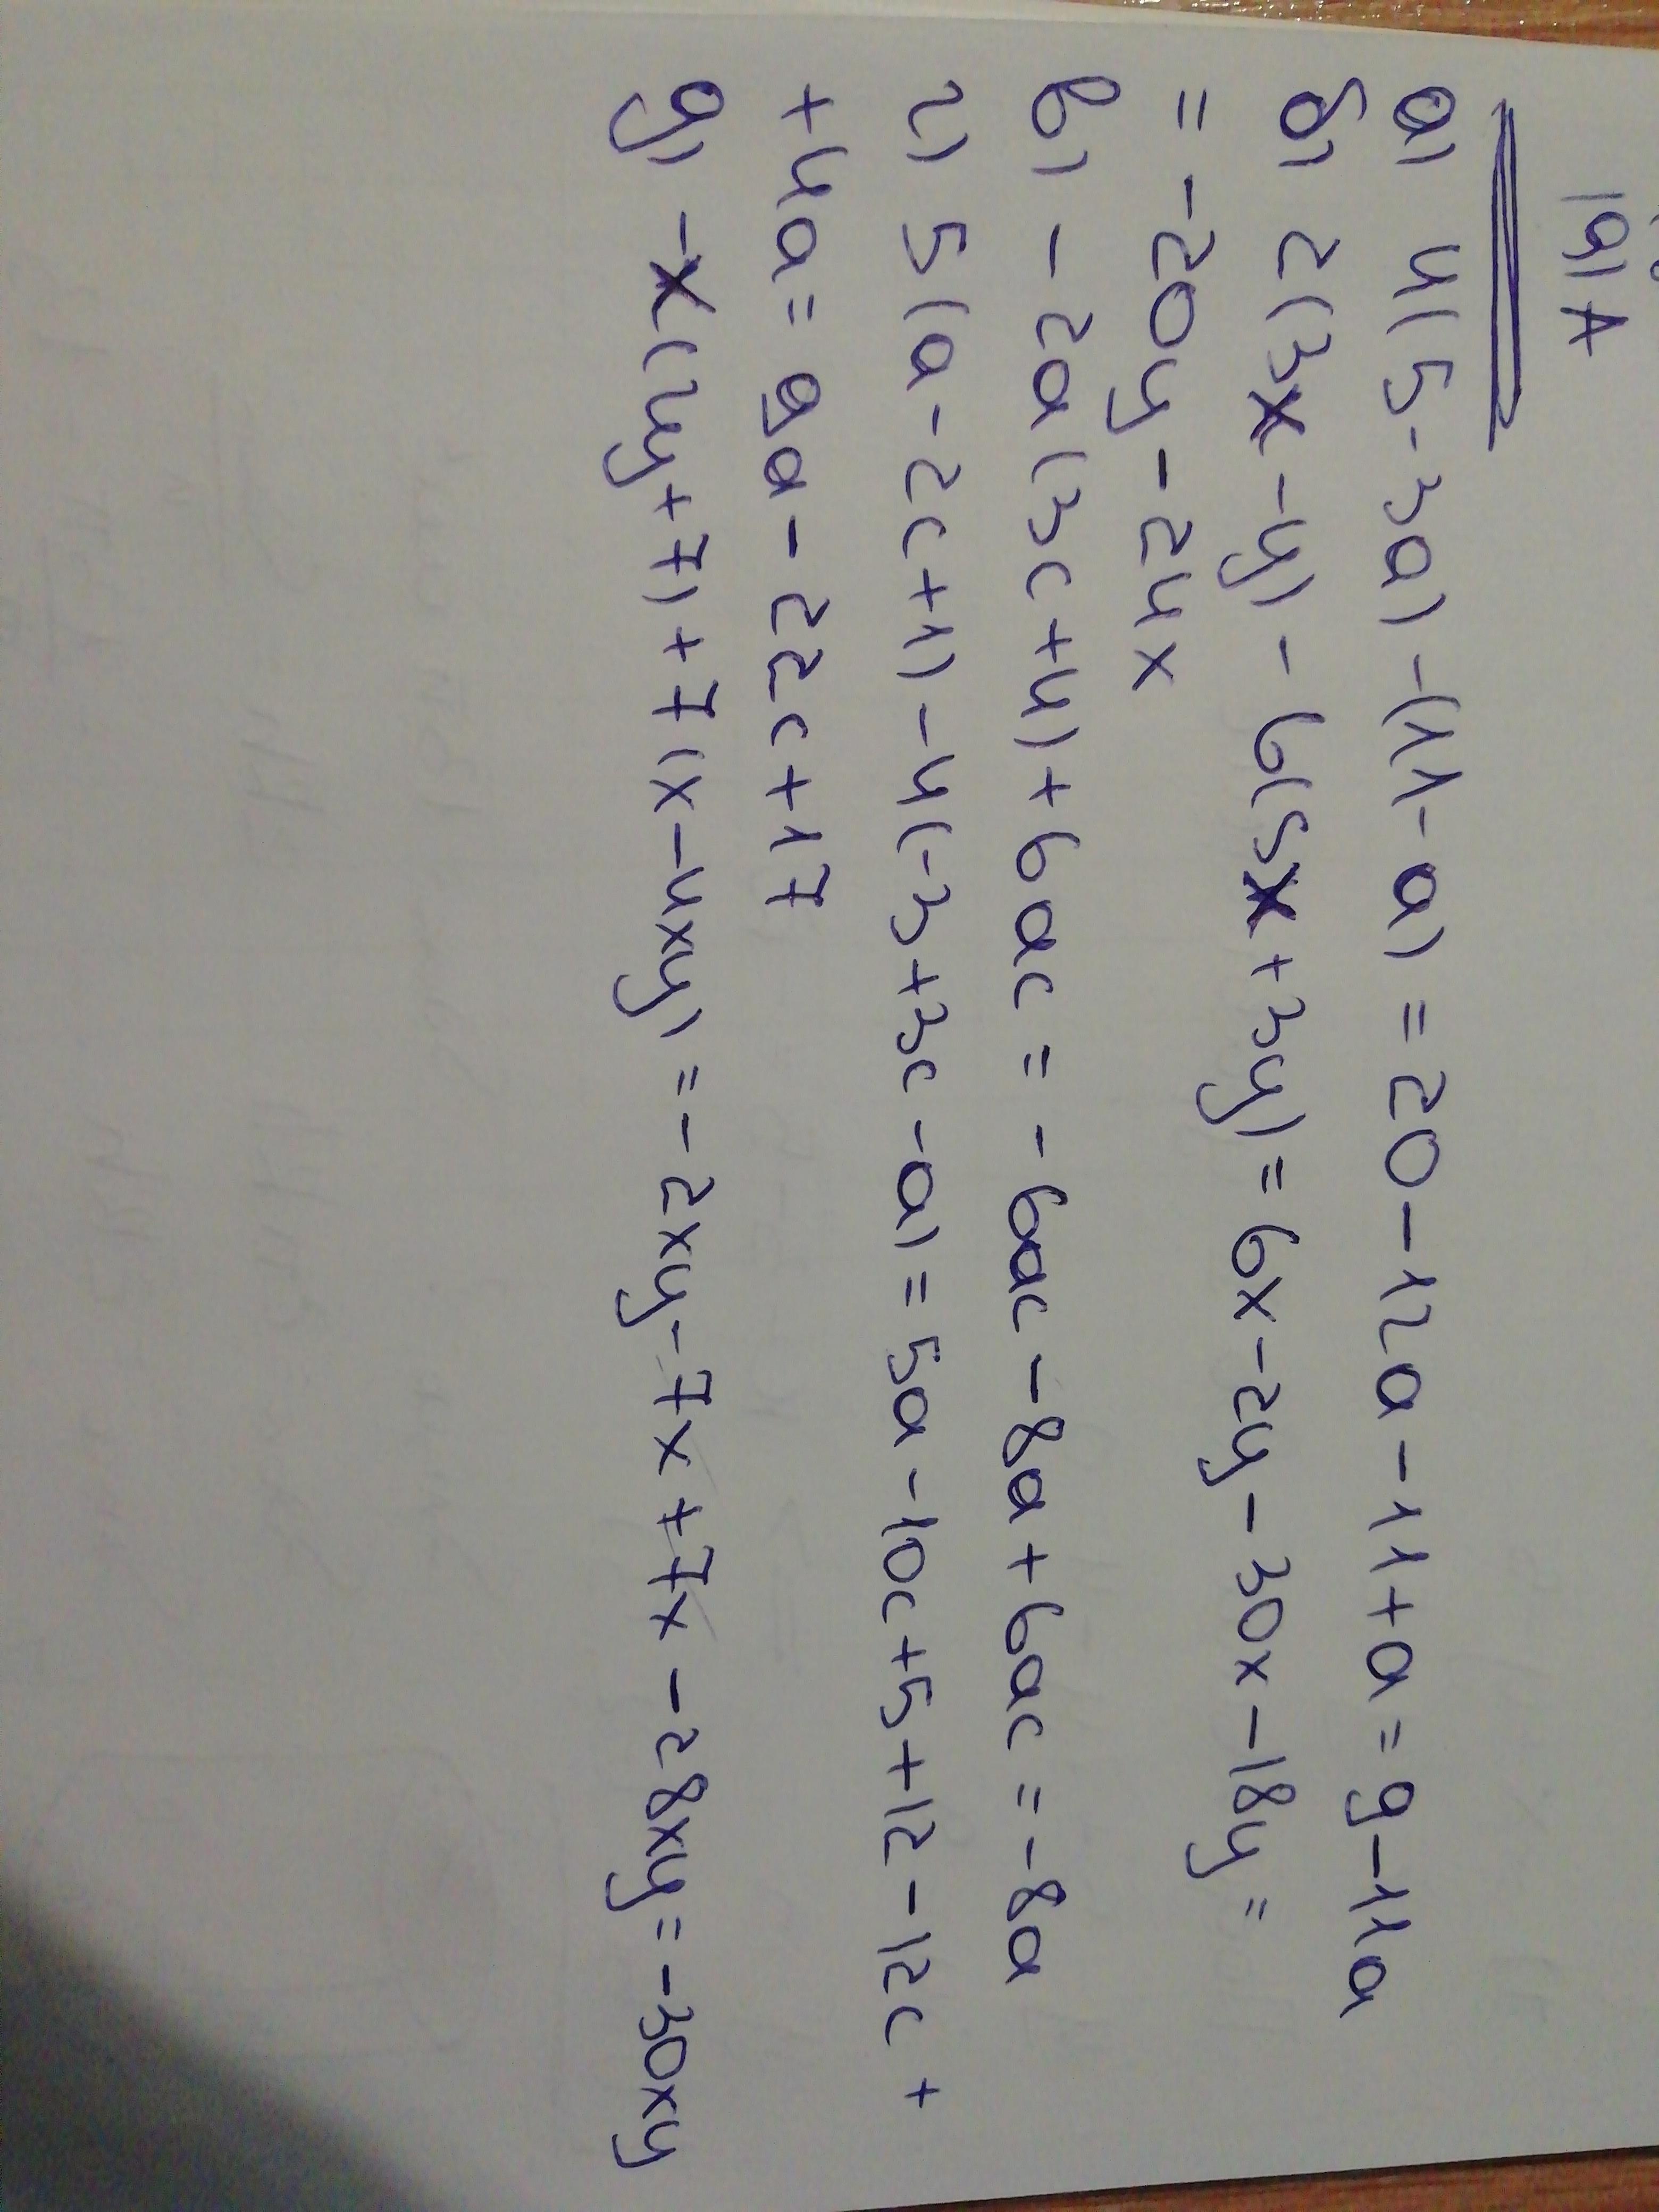 а) 4(5-3a)-(11-a)=20-12a-11+a=9-11a
б) 2(3x-y)-6(5x+3y)=6x-2y-30x-18y=
=-20y-24x
в) -2a(3c+4)+6ac=-6ac-8a+6ac=-8a
г) 5(a-2c+1)-4(-3+3c-a)=5a-10c+5+12-12c+
+4a=9a-22c+17
д) -x(2y+7)+7(x-4xy)=-2xy-7x+7x-28xy=-30xy